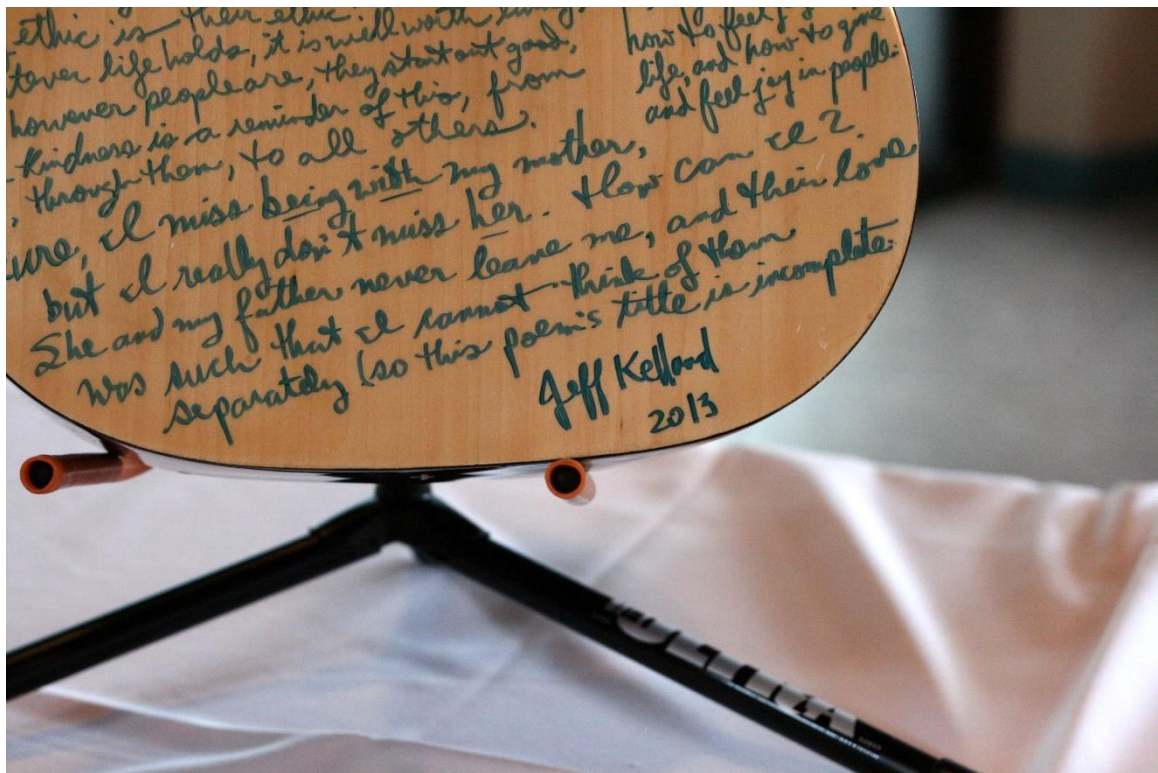 ethic is their ethic
life holds, it is well worth living,
however people are, they start out good.
kindness is a reminder of this, from
, through them, to all others.
how to feel
life, and how to give
and feel joy in people.
I miss being with my mother,
but I really don't miss her. How can I?
She and my father never leave me, and their love
was such that I cannot think of them
separately (so this poem's title is incomplete.
Jeff Kelland
2013
ULTRA